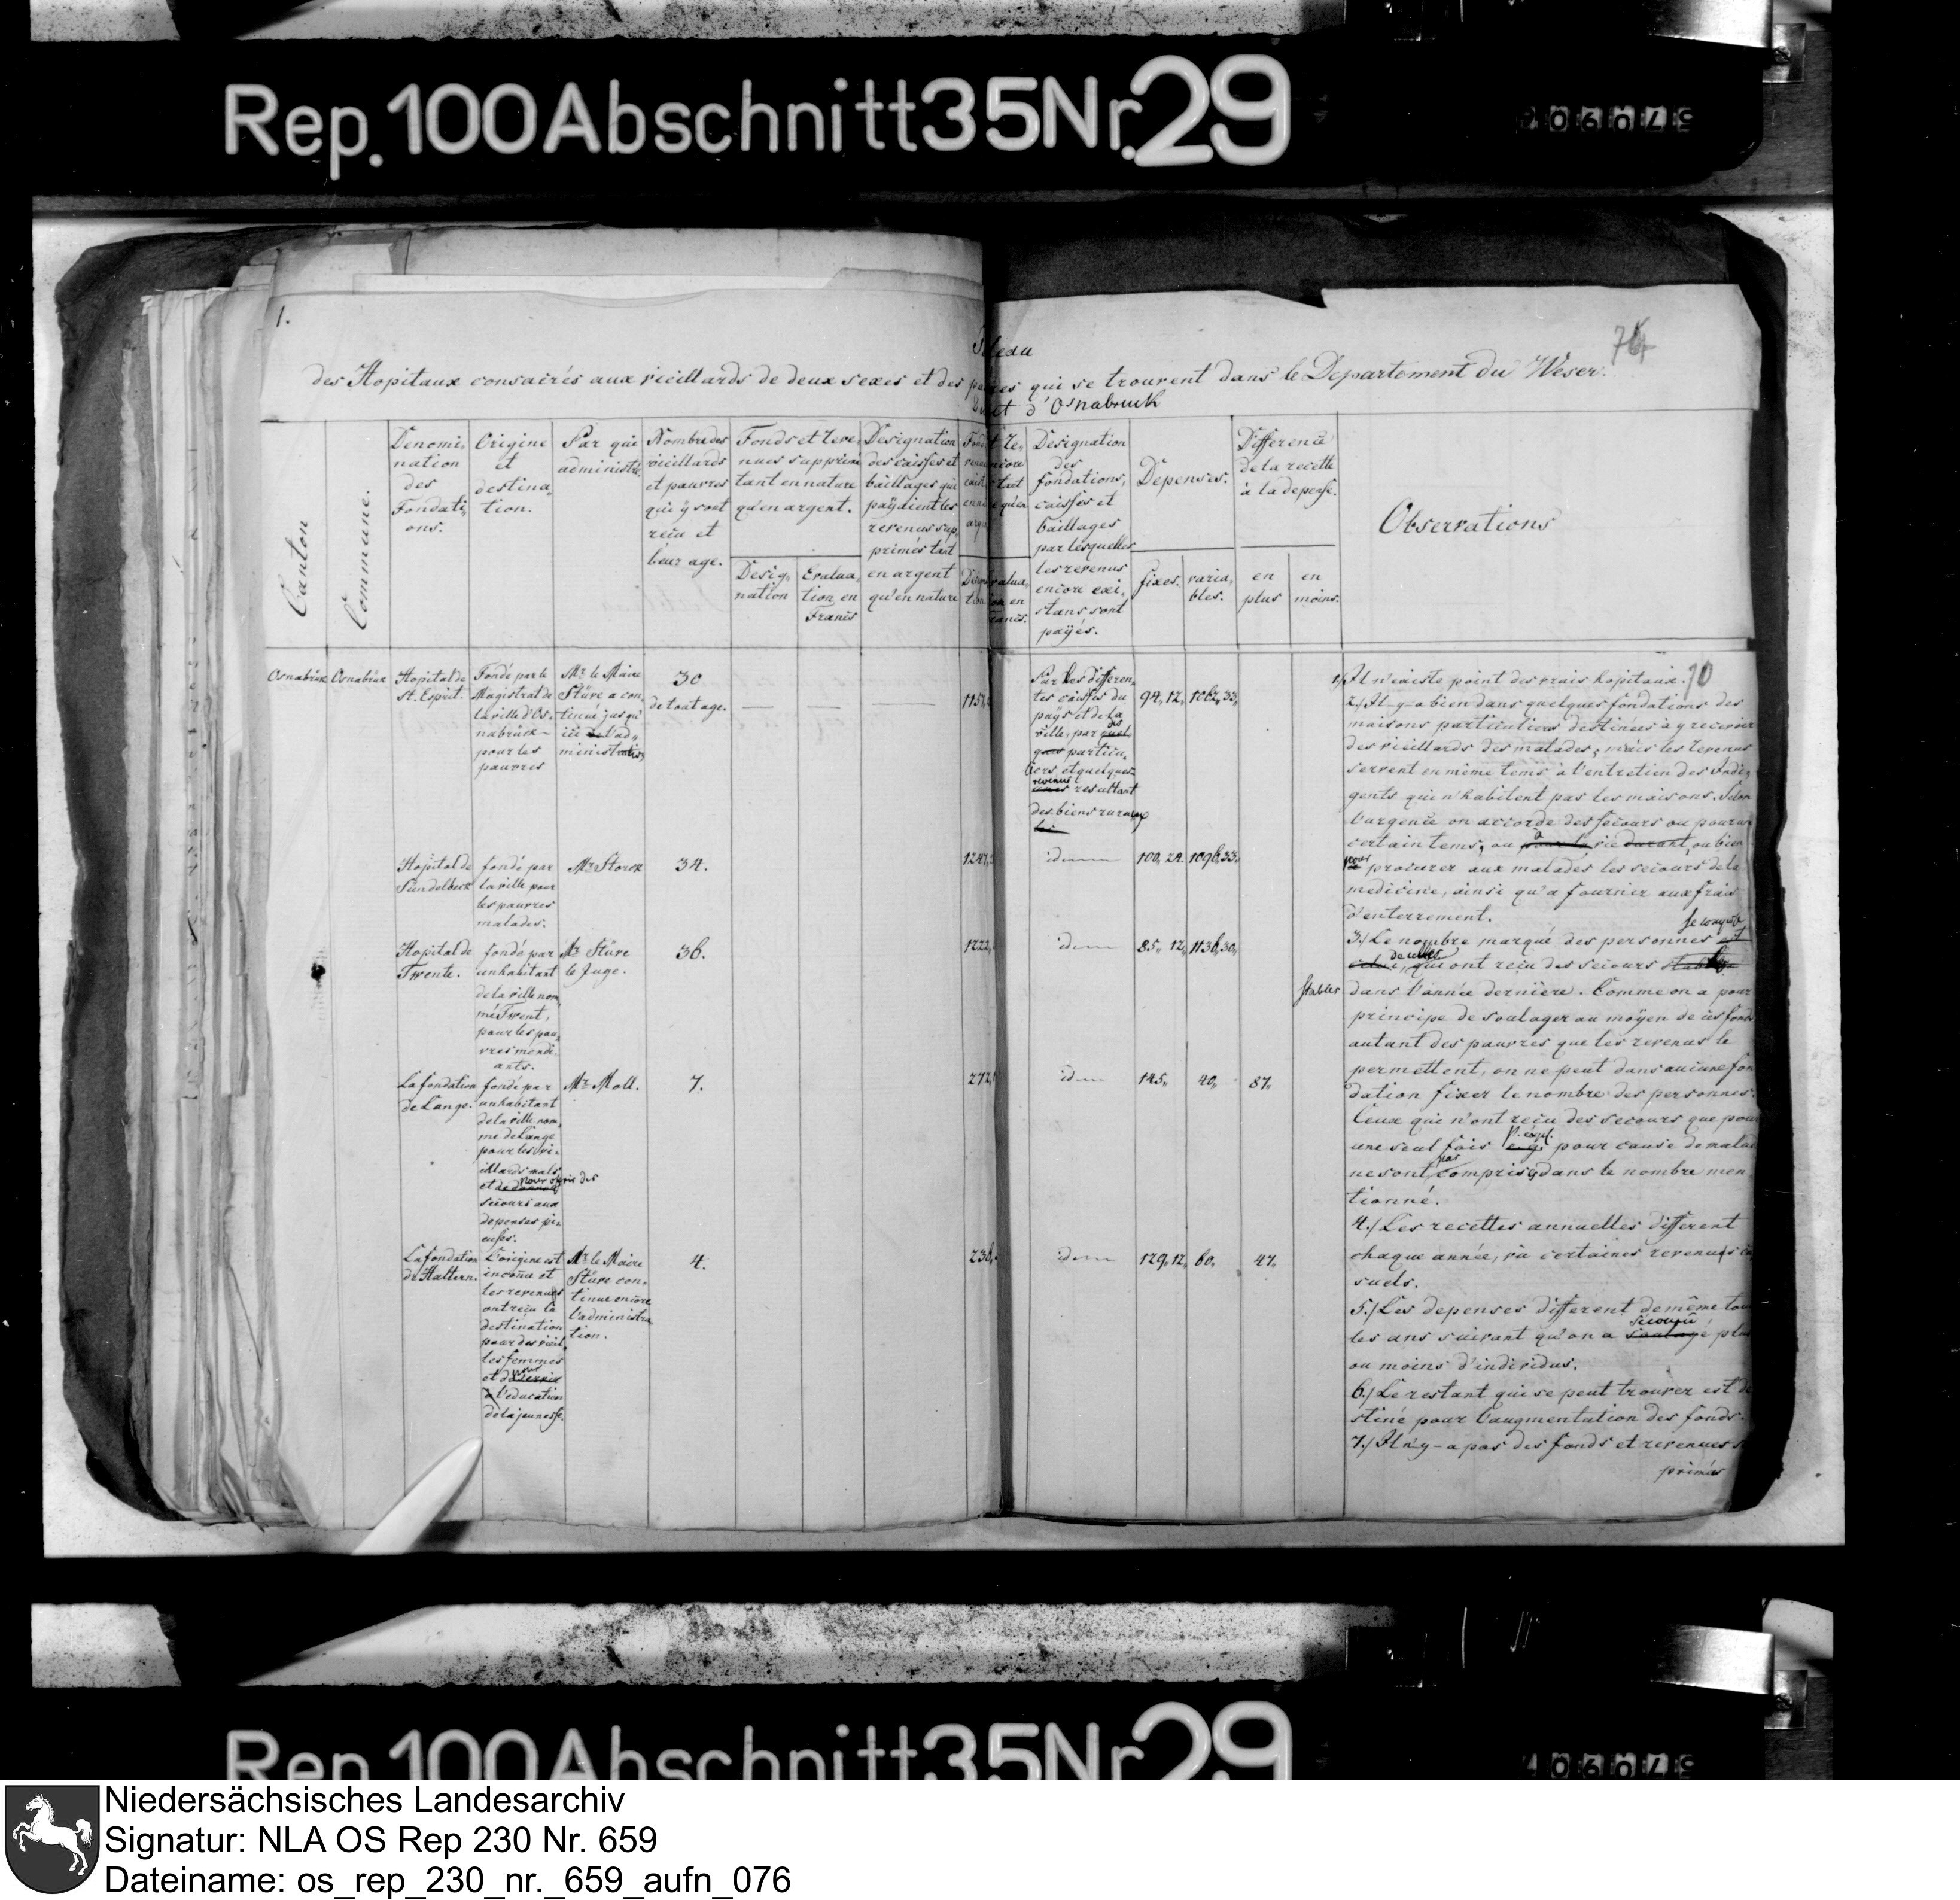 Rep. 100 Abschnitt 35 Nr. 29
1.
des Hopitaux consacrés aux vieillards de deux sexes et des qui se trouvent dans le Departement du Weser.
d'Osnabruck
Canton
Commune.
Denomi-
nation
des
Fondati-
ons.
Origine
et
destina-
tion.
Par qui
administré
Nombre des
vieillards
et pauvres
qui y sont
reçu et
leur age.
Fonds et reve-
nues supprimé
tant en nature
qu'en argent.
Desig-
nation
Evalua-
tion en
Francs
Designation
des caisses et
baillages qui
payaient les
revenus sup-
primés tant
en argent
qu'en nature
Designation
des
fondations,
caisses et
baillages
par lesquelles
les revenus
encore exi-
stans sont
payés.
Depenses.
fixes.
varia-
bles.
Difference
de la recette
à la depense.
en
plus
en
moins.
Observations
Osnabrük
Osnabrük
Hopital de
St. Esprit.
Fondé par le
Magistrat de
la ville d'Os-
nabrück
pour les
pauvres
Mr. le Maire
Stüve a con-
tinué jusqu'
ici l'ad-
ministration
30
de tout age.
Par les differen-
tes caisses du
pays et de la
ville, par des
particu-
liers et quelques
revenus resultant
des biens ruraux
94,12,
1062,33,
Hopital de
Sündelbeck
fondé par
la ville pour
les pauvres
malades.
Mr. Storck
34.
idem
100,24.
1096,33,
Hopital de
Twente.
fondé par
un habitant
de la ville nom-
mé Twent,
pour les pau-
vres mendi-
ants.
Mr. Stüve
le Juge.
36.
idem
85,12,
1136,30,
La fondation
de Lange.
fondé par
un habitant
de la ville nom-
me de Lange
pour les vi-
eillards mals
et
secours aux
depenses pi-
euses.
Mr. Moll.
7.
idem
145,
40,
87,
La fondation
de Haltern.
L'origine est
inconnu et
les revenues
ont reçu la
destination
pour des vieil-
les femmes
et
l'education
de la jeunesse.
Mr. le Maire
Stüve con-
tinue encore
l'administra-
tion.
4.
idem
129,12,
60,
47,
1./ Il n'existe point des vrais hopitaux. 10
2./ Il-y-a bien dans quelques fondations des
maisons particuliers destinées à y recevoir
des vieillards des malades; mais les revenus
servent en même tems à l'entretien des Indi-
gents qui n'habitent pas les maisons. Selon
l'urgence on accorde des secours ou pour un
certain tems, ou à vie, ou bien
pour procurer aux malades les secours de la
medicine, ainsi qu'a fournir aux frais
d'enterrement.
3./ Le nombre marqué des personnes
de celles, qui ont reçu des secours
dans l'année dernière. Comme on a pour
principe de soulager au moyen de ces fonds
autant des pauvres que les revenus le
permettent, on ne peut dans aucune fon
dation fixer le nombre des personnes.
Ceux qui n'ont reçu des secours que pour
une seul fois pour cause de mala
ne sont pas compris dans le nombre men
tionné.
4./ Les recettes annuelles different
chaque année, vu certaines revenus ca
suels.
5./ Les depenses different de même tou
les ans suivant qu'on a secouru plus
ou moins d'individus.
6./ Le restant qui se peut trouver est de
stiné pour l'augmentation des fonds.
7./ Il n'y-a pas des fonds et revenues
primés
Rep. 100 Abschnitt 35 Nr. 29
Niedersächsisches Landesarchiv
Signatur: NLA OS Rep 230 Nr. 659
Dateiname: os_rep_230_nr._659_aufn_076